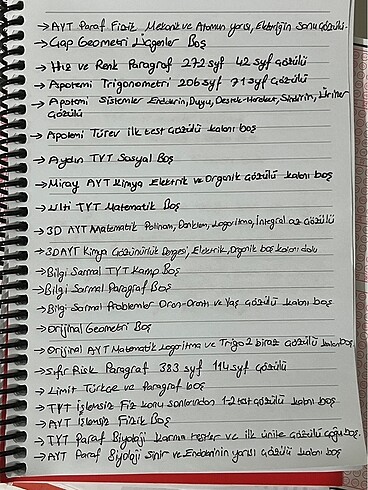 →AYT Paraf Fizik Mekanik ve Atomun yarısı, Elektriğin sonu çözülü.
→Çap Geometri Üçgenler Boş
→Hız ve Renk Paragraf 272 syf 42 syf çözülü
→Apotemi Trigonometri 206 syf 71 syf çözülü
→Apotemi Sistemler Endokrin, Duyu, Destek-Hareket, Sindirim, Üriner
çözülü
→Apotemi Türev ilk test çözülü kalanı boş
→Aydın TYT Sosyal Boş
→Miray AYT Kimya Elektrik ve Organik çözülü kalanı boş
→Ulti TYT Matematik Boş
→3D AYT Matematik Polinom, Denklem, Logaritma, İntegral az çözülü
→3D AYT Kimya Çözünürlük Dengesi, Elektrik, Organik boş kalanı dolu
→Bilgi Sarmal TYT Kamp Boş
→Bilgi Sarmal Paragraf Boş
→Bilgi Sarmal Problemler Oran-Orantı ve Yaş çözülü kalanı boş
→Orijinal Geometri Boş
→Orijinal AYT Matematik Logaritma ve Trigo 2 biraz çözülü kalanı boş.
→Sıfır Risk Paragraf 383 syf 114 syf çözülü
→Limit Türkçe ve Paragraf boş
→TYT İşlemsiz Fiz konu sonlarından 1-2 test çözülü kalanı boş
→AYT İşlemsiz Fizik Boş
→TYT Paraf Biyoloji Karma testler ve ilk ünite çözülü çoğu boş.
→AYT Paraf Biyoloji Sinir ve Endokrinin yarısı çözülü kalanı boş